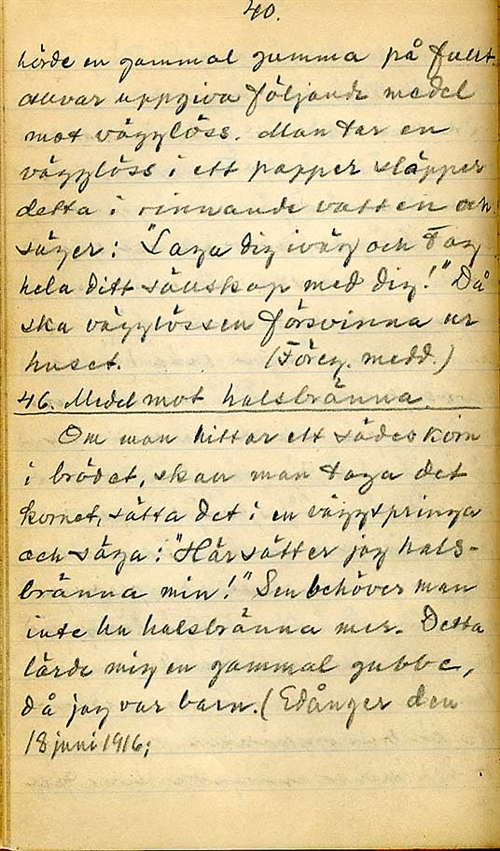 40.
hörde en gammal gumma på fullt
allvar uppgiva följande medel
mot vägglöss. Man tar en
vägglöss i ett papper släpper
detta i rinnande vatten och
säger: "Laga dig iväg och Tag
hela ditt sällskap med dig!" Då
ska vägglössen försvinna ur
huset. (Föreg. medd.)
46. Medel mot halsbränna.
Om man hittar ett sädeskorn
i brödet, skall man taga det
kornet, sätta det i en väggspringa
och säga: "Här sätter jag hals-
bränna min!" Sen behöver man
inte ha halsbränna mer. Detta
lärde mig en gammal gubbe,
då jag var barn. (Edånger den
18 juni 1916;